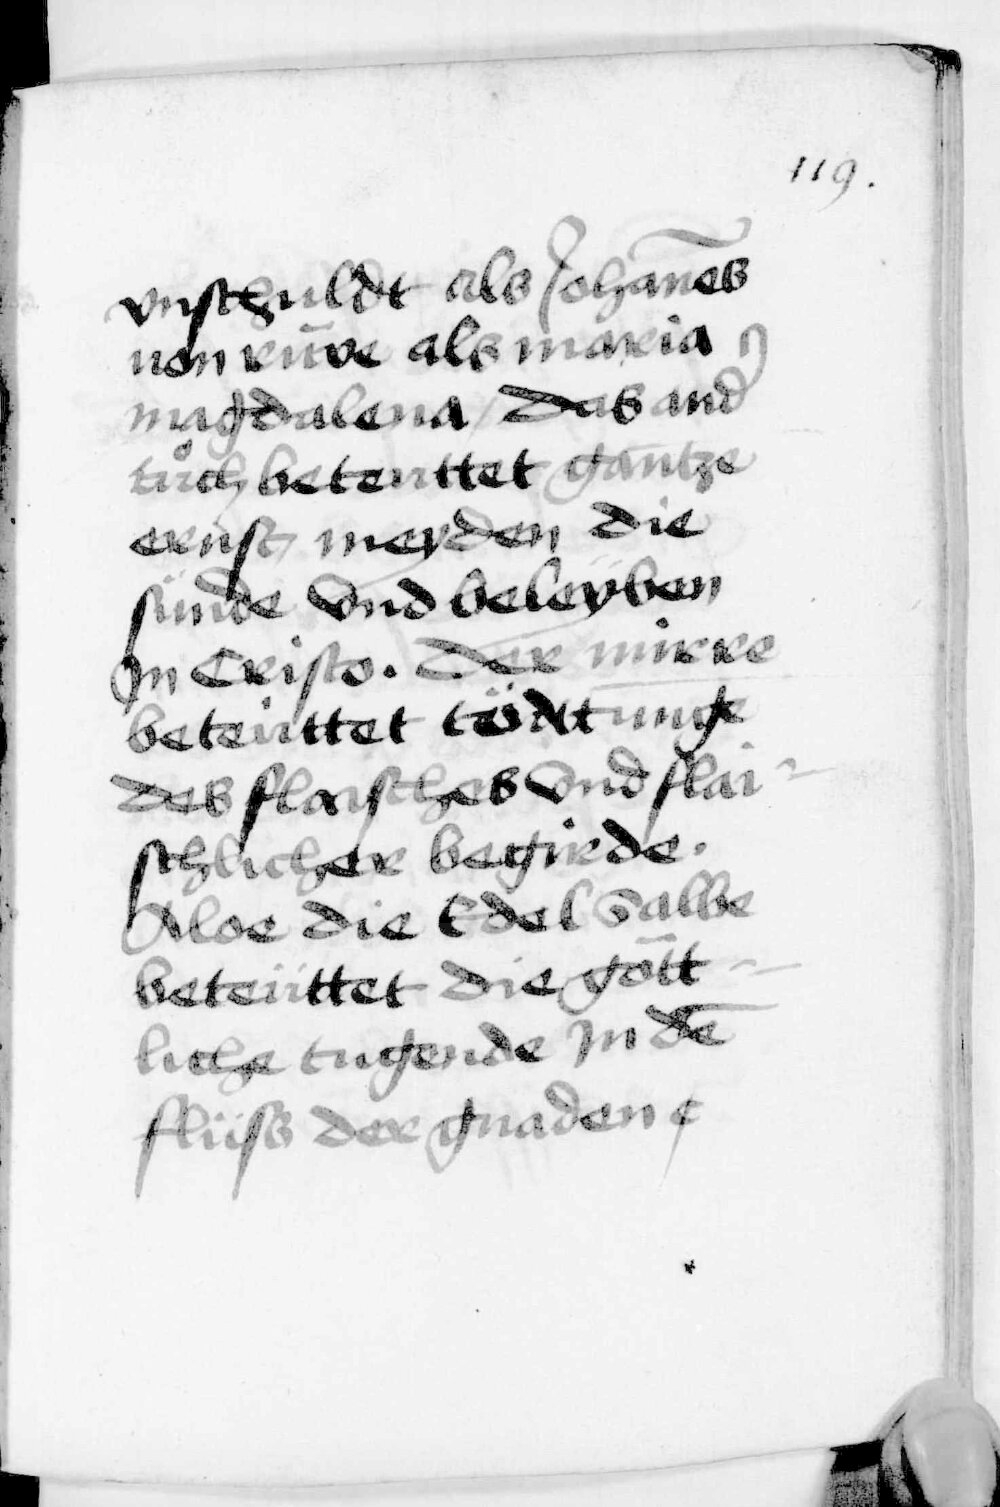 119.
vnschuldt als Johan̄es
von rūwe als maria
magdalena / das and
tůch beteuttet gantze
ernst meyden die
sünde vnd beleÿben
Jn Cristo. Der mirre
beteüttet tödtunge
des flaisches vnd flai-
schlicher begirde.
Aloe die Edel Salbe
beteüttet die gött-
liche tugende Jn dē
flüss der gnaden